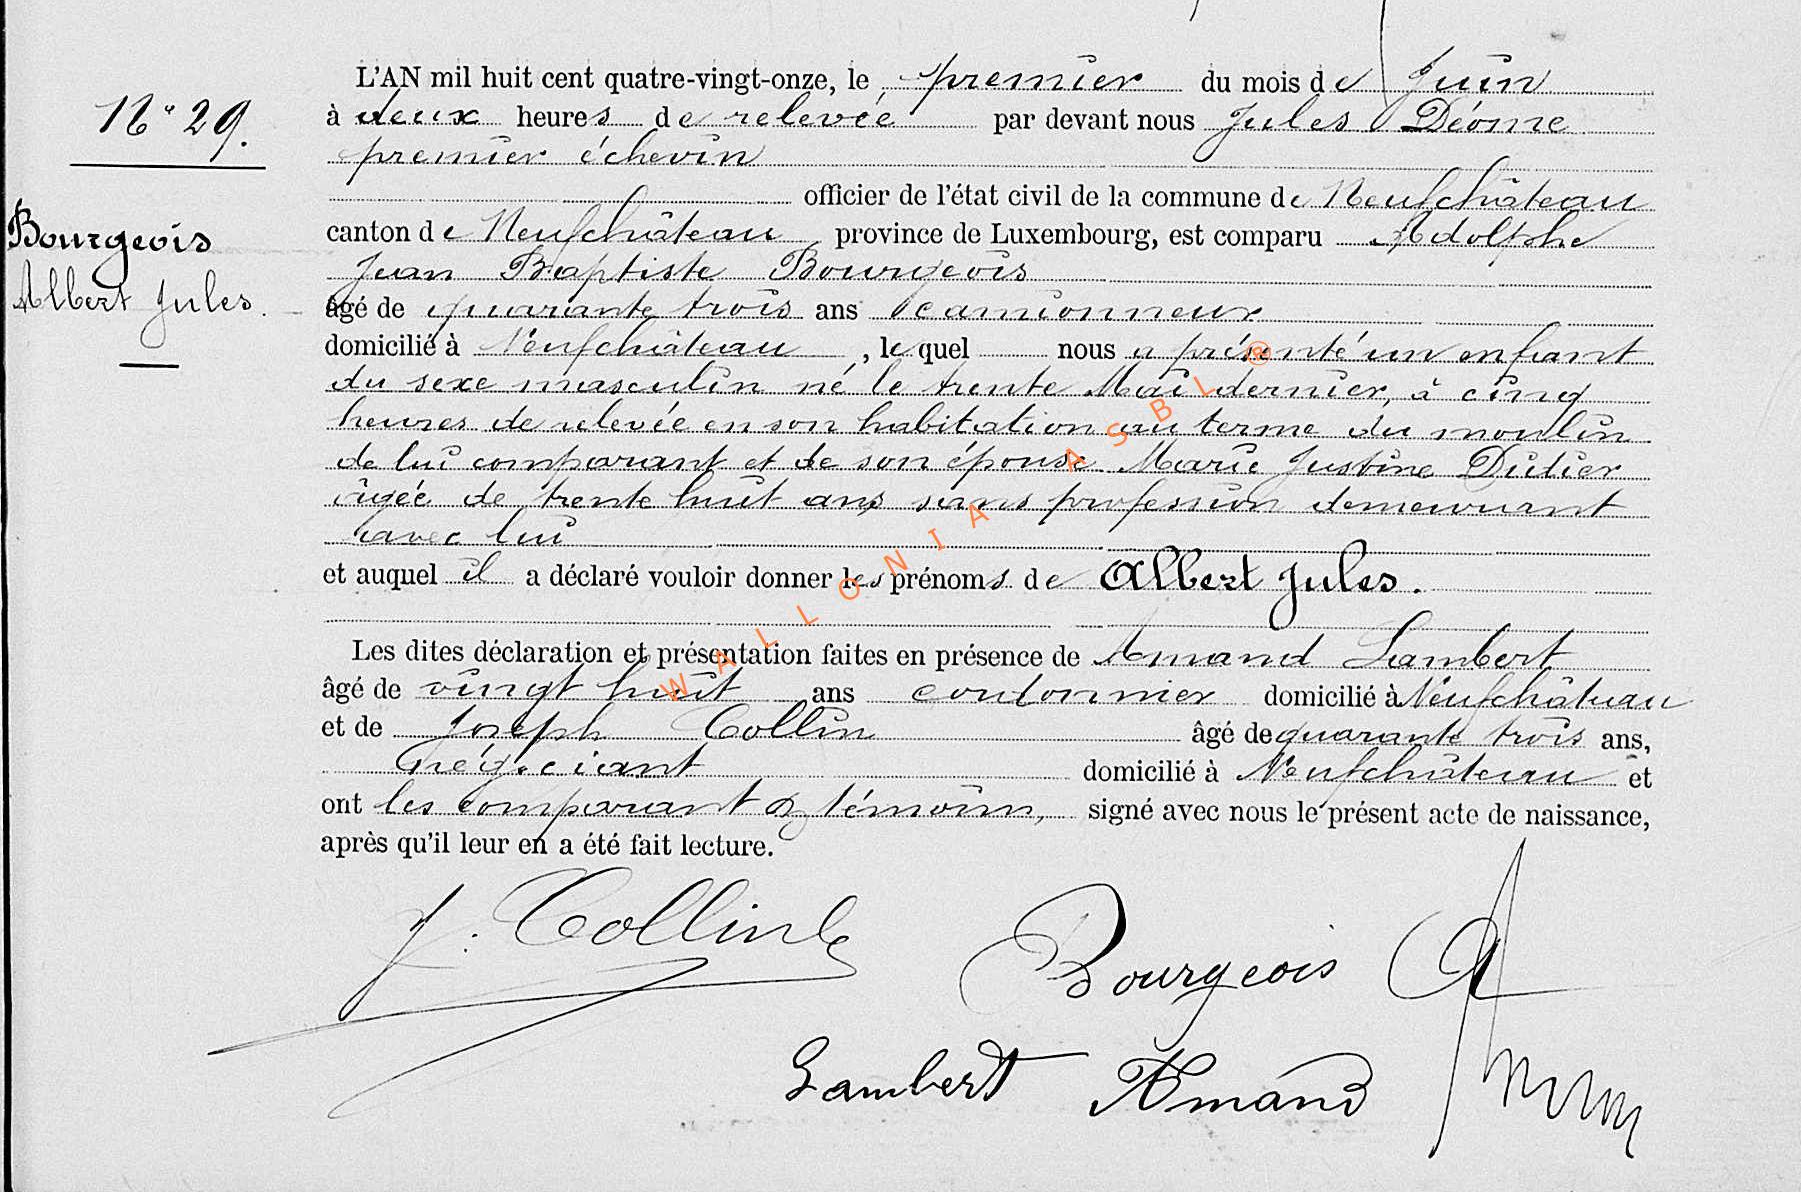 N° 29.
Bourgeois
Albert Jules.
L'AN mil huit cent quatre-vingt-onze, le premier du mois de Juin
à deux heures de relevée par devant nous Jules Déome
premier échevin
officier de l'état civil de la commune de Neufchâteau
canton de Neufchâteau province de Luxembourg, est comparu Adolphe
Jean Baptiste Bourgeois
âgé de quarante trois ans camionneur
domicilié à Neufchâteau , lequel nous a présenté un enfant
du sexe masculin né le trente Mai dernier, à cinq
heures de relevée en son habitation au terme du moulin
de lui comparant et de son épouse Marie Justine Didier
âgée de trente huit ans sans profession demeurant
avec lui
et auquel il a déclaré vouloir donner les prénoms de Albert Jules.
Les dites déclaration et présentation faites en présence de Amand Lambert
âgé de vingt huit ans cordonnier domicilié à Neufchâteau
et de Joseph Collin âgé de quarante trois ans,
Négociant domicilié à Neufchâteau et
ont les comparant & témoins, signé avec nous le présent acte de naissance,
après qu'il leur en a été fait lecture.
J. Collin
Bourgeois A
Lambert Amand
WALLONIA ASBL ®